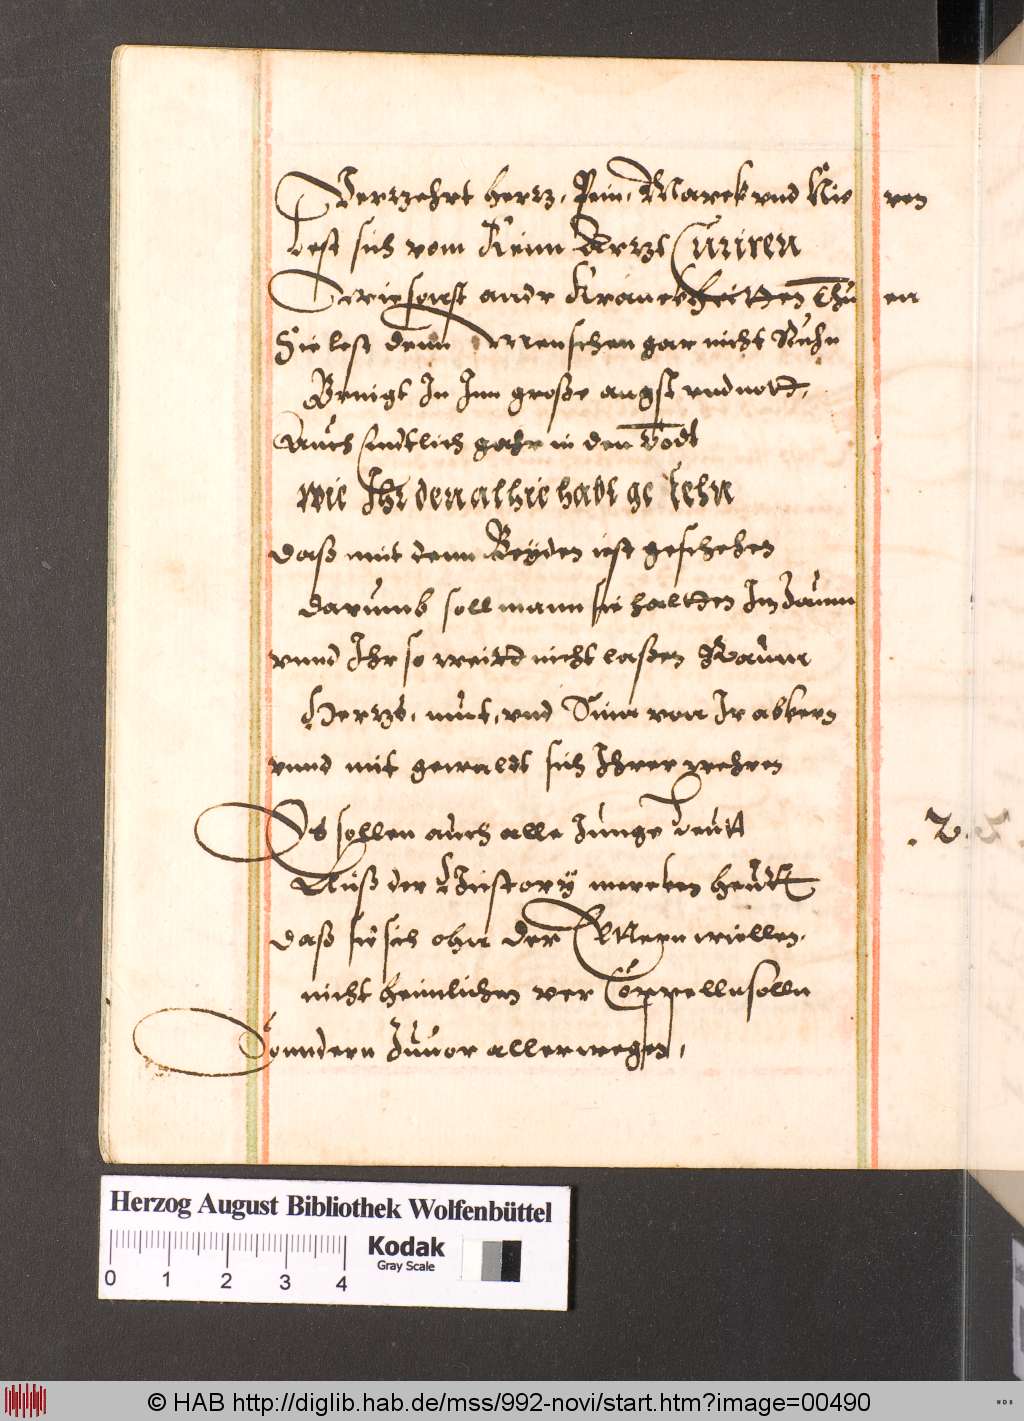 Verzehrt hertz, Pein, Marck vnd Nieren
Lest sich vom Keinn Artzt Curiren
Wie sonst andr Kranckheitten Thuen
Sie lest denn Menschen gar nicht Ruhn
Brengt In Inn große angst vnd nott,
Auch endtlich gahr in den Todt
wie Ihr den alhie habt gesehn
daß mit denn Beyden ist geschehen
darumb soll mann sie haltten Im Zaum
vnnd Ihr so weitt nicht laßen Raum
Hertzt, mut, vnd Sinn von Ir abkern
vnnd mit gewaldt sich Ihrer wehren
Es sollen auch alle Junge Leutt
Auß der History mercken heutt
daß sie sich ohn der Elttern wiellen
nicht heimlichen ver Coppelln solln
Sonndern Zuuor allerwegen,
.2.
Herzog August Bibliothek Wolfenbüttel
Kodak
Gray Scale
0 1 2 3 4
© HAB http://diglib.hab.de/mss/992-novi/start.htm?image=00490